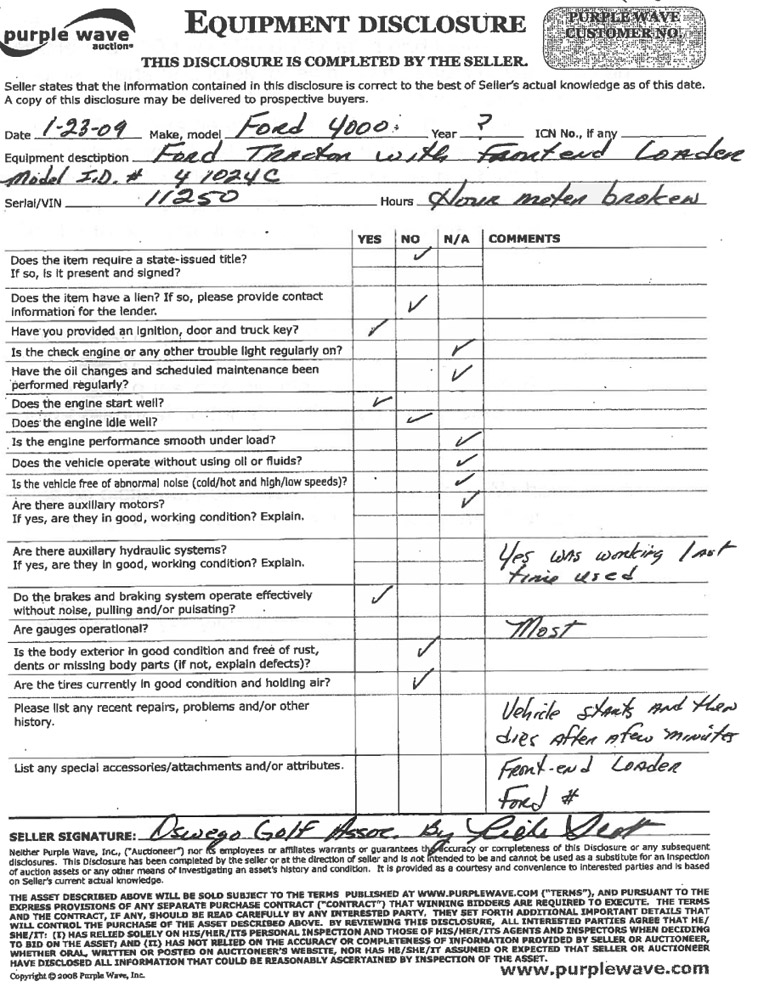 purple wave
auction®
EQUIPMENT DISCLOSURE
PURPLE WAVE
CUSTOMER NO.
THIS DISCLOSURE IS COMPLETED BY THE SELLER.
Seller states that the information contained in this disclosure is correct to the best of Seller's actual knowledge as of this date.
A copy of this disclosure may be delivered to prospective buyers.
Date 1-23-09 Make, model Ford 4000 Year ? ICN No., if any
Equipment description Ford Tractor with Front end Loader
Model I.D. # 41024C
Serial/VIN 11250 Hours Hour meter broken
YES NO N/A COMMENTS
Does the item require a state-issued title? ✓
If so, is it present and signed?
Does the item have a lien? If so, please provide contact ✓
information for the lender.
Have you provided an ignition, door and truck key? ✓
Is the check engine or any other trouble light regularly on? ✓
Have the oil changes and scheduled maintenance been ✓
performed regularly?
Does the engine start well? ✓
Does the engine idle well? ✓
Is the engine performance smooth under load? ✓
Does the vehicle operate without using oil or fluids? ✓
Is the vehicle free of abnormal noise (cold/hot and high/low speeds)? ✓
Are there auxillary motors? ✓
If yes, are they in good, working condition? Explain.
Are there auxillary hydraulic systems? Yes was working last
If yes, are they in good, working condition? Explain. time used
Do the brakes and braking system operate effectively ✓
without noise, pulling and/or pulsating?
Are gauges operational? Most
Is the body exterior in good condition and free of rust, ✓
dents or missing body parts (if not, explain defects)?
Are the tires currently in good condition and holding air? ✓
Please list any recent repairs, problems and/or other Vehicle starts and then
history. dies after a few minutes
List any special accessories/attachments and/or attributes. Front-end Loader
Ford #
SELLER SIGNATURE: Oswego Golf Assoc. By
Neither Purple Wave, Inc., ("Auctioneer") nor its employees or affiliates warrants or guarantees the accuracy or completeness of this Disclosure or any subsequent
disclosures. This Disclosure has been completed by the seller or at the direction of seller and is not intended to be and cannot be used as a substitute for an inspection
of auction assets or any other means of investigating an asset's history and condition. It is provided as a courtesy and convenience to interested parties and is based
on Seller's current actual knowledge.
THE ASSET DESCRIBED ABOVE WILL BE SOLD SUBJECT TO THE TERMS PUBLISHED AT WWW.PURPLEWAVE.COM ("TERMS"), AND PURSUANT TO THE
EXPRESS PROVISIONS OF ANY SEPARATE PURCHASE CONTRACT ("CONTRACT") THAT WINNING BIDDERS ARE REQUIRED TO EXECUTE. THE TERMS
AND THE CONTRACT, IF ANY, SHOULD BE READ CAREFULLY BY ANY INTERESTED PARTY. THEY SET FORTH ADDITIONAL IMPORTANT DETAILS THAT
WILL CONTROL THE PURCHASE OF THE ASSET DESCRIBED ABOVE. BY REVIEWING THIS DISCLOSURE, ALL INTERESTED PARTIES AGREE THAT HE/
SHE/IT: (I) HAS RELIED SOLELY ON HIS/HER/ITS PERSONAL INSPECTION AND THOSE OF HIS/HER/ITS AGENTS AND INSPECTORS WHEN DECIDING
TO BID ON THE ASSET; AND (II) HAS NOT RELIED ON THE ACCURACY OR COMPLETENESS OF INFORMATION PROVIDED BY SELLER OR AUCTIONEER,
WHETHER ORAL, WRITTEN OR POSTED ON AUCTIONEER'S WEBSITE, NOR HAS HE/SHE/IT ASSUMED OR EXPECTED THAT SELLER OR AUCTIONEER
HAVE DISCLOSED ALL INFORMATION THAT COULD BE REASONABLY ASCERTAINED BY INSPECTION OF THE ASSET.
Copyright © 2008 Purple Wave, Inc. www.purplewave.com